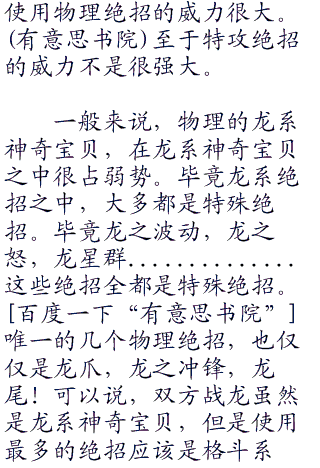 使用物理绝招的威力很大。
(有意思书院)至于特攻绝招
的威力不是很强大。
一般来说，物理的龙系
神奇宝贝，在龙系神奇宝贝
之中很占弱势。毕竟龙系绝
招之中，大多都是特殊绝
招。毕竟龙之波动，龙之
怒，龙星群...............
这些绝招全都是特殊绝招。
[百度一下“有意思书院”]
唯一的几个物理绝招，也仅
仅是龙爪，龙之冲锋，龙
尾！可以说，双方战龙虽然
是龙系神奇宝贝，但是使用
最多的绝招应该是格斗系